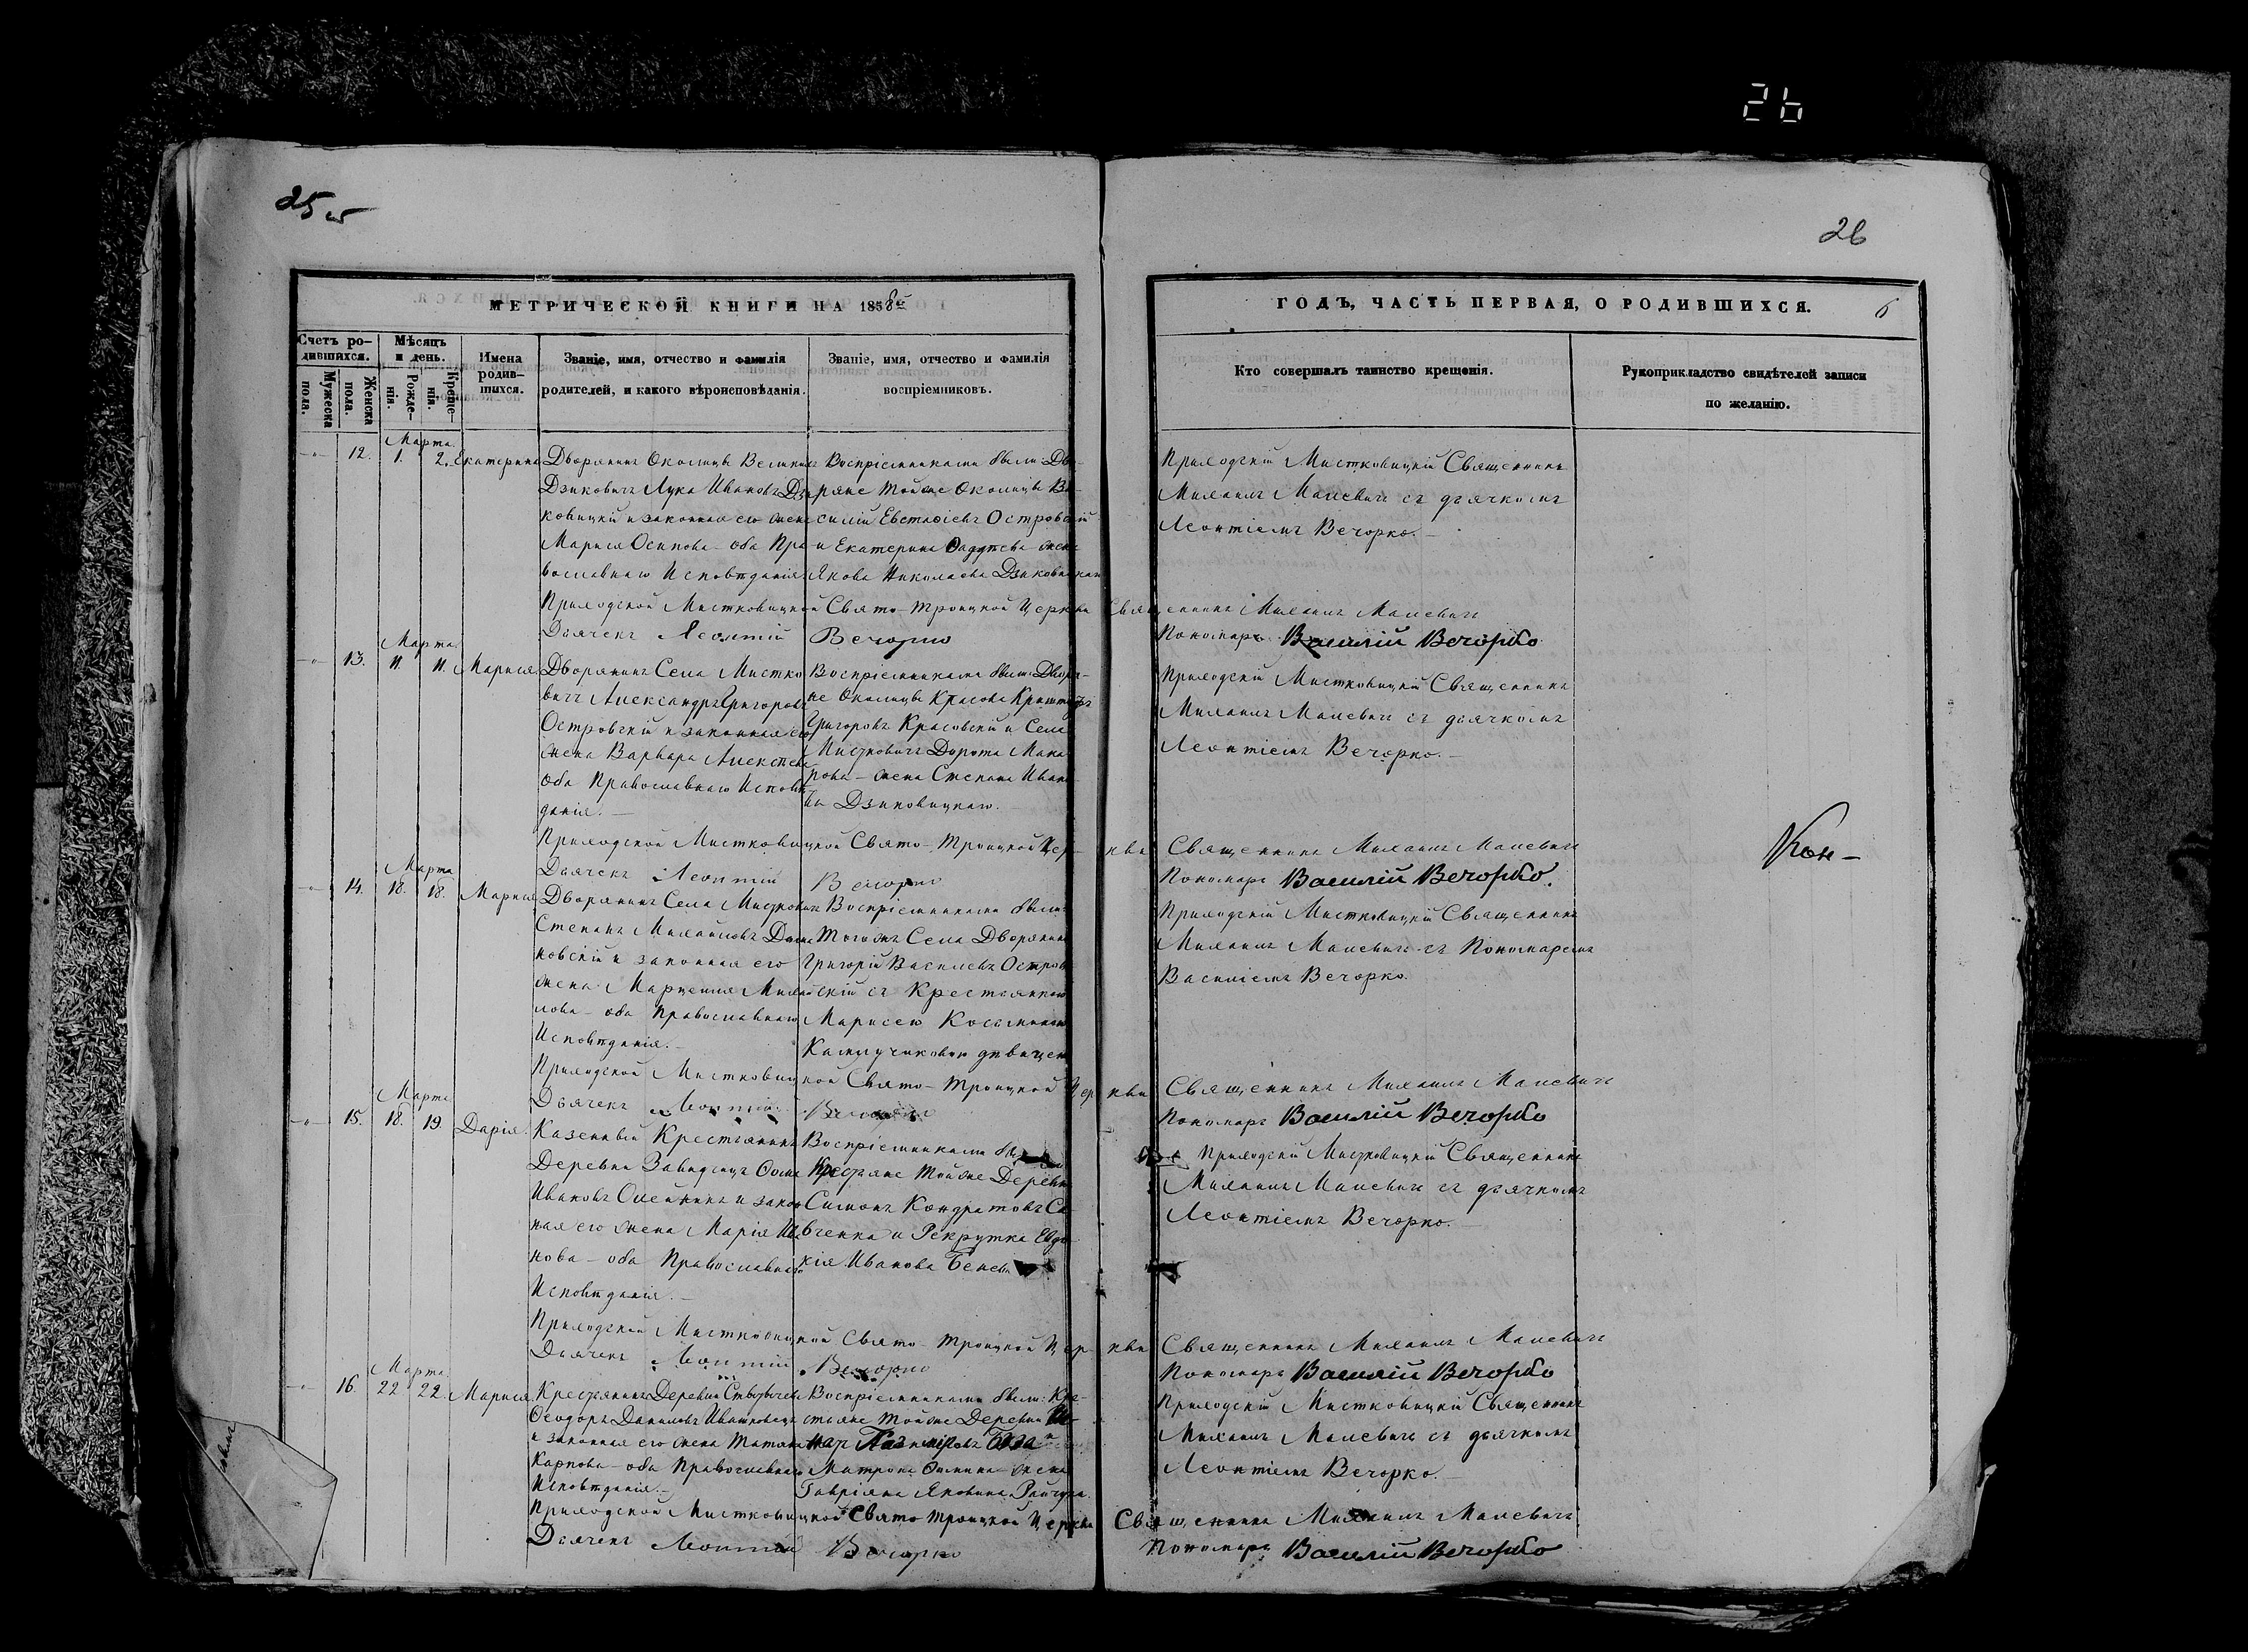 26
25
26
МЕТРИЧЕСКОЙ КНИГИ НА 1858й
Счетъ ро-
дившихся.
Мужеска
пола.
Женска
пола.
Мѣсяцъ
и день.
Рожде-
нія.
Креще-
нія.
Имена
родив-
шихся.
Званіе, имя, отчество и фамилія
родителей, и какого вѣроисповѣданія.
Званіе, имя, отчество и фамилія
воспріемниковъ.
ГОДЪ, ЧАСТЬ ПЕРВАЯ, О РОДИВШИХСЯ.
6
Кто совершалъ таинство крещенія.
Рукоприкладство свидѣтелей записи
по желанію.
Марта
12. 1. 2. Екатерина
Дворянинъ Околицы Великихъ
Дзиковичъ Лука Ивановъ Дзи
ковицкій и законная его жена
Марія Осипова – оба Пра
вославнаго Исповѣданія
Воспріемниками были: Дво-
ряне тойже Околицы Ва-
силій Евстафіевъ Островскій
и Екатерина Фаддѣева жена
Якова Николаева Дзиковицкаго
Приходскій Мистковицкій Священникъ
Михаилъ Малевичъ съ дьячкомъ
Леонтіемъ Вечорко. –
Приходской Мистковицкой Свято-Троицкой Церкви Священникъ Михаилъ Малевичъ
Дьячекъ Леонтій Вечорко
Пономарь Василій Вечорко
Марта
13. 11. 11. Марія
Дворянинъ Села Мистко
вичъ Александръ Григоровъ
Островскій и законная его
жена Варвара Алексѣева
оба Православнаго Исповѣ
данія. –
Воспріемниками были: Дворя-
не Околицы Красова
Григоровъ Красовскій и Села
Мистковичъ Дорота Мака
рова – жена Степана Ивано
ва Дзиковицкаго.
Приходскій Мистковицкій Священникъ
Михаилъ Малевичъ съ дьячкомъ
Леонтіемъ Вечорко. –
Приходской Мистковицкой Свято-Троицкой Цер- кви Священникъ Михаилъ Малевичъ
Дьячекъ Леонтій Вечорко
Пономарь Василій Вечорко.
Кон-
Марта
14. 18. 18. Марія
Дворянинъ Села Мистковичъ
Степанъ Михайловъ
новскій и законная его
жена Марцелля Михай
лова – оба Православнаго
Исповѣданія. –
Воспріемниками были:
Тогожъ Села Дворянинъ
Григорій Василевъ Остров
скій съ Крестьянкою
Маріею
дѣвицею
Приходскій Мистковицкій Священникъ
Михаилъ Малевичъ съ Пономаремъ
Василіемъ Вечорко.
Приходской Мистковицкой Свято-Троицкой Цер кви Священникъ Михаилъ Малевичъ
Дьячекъ Леонтій Вечорко
Пономарь Василій Вечорко
Марта
15. 18. 19. Дарія.
Казенный Крестьянинъ
Деревни Завидчицъ Фома
Ивановъ Олейникъ и закон
ная его жена Марія Ива
нова – оба Православнаго
Исповѣданія. –
Воспріемниками
Крестьяне тойже Деревни
Симонъ Кондратовъ Са
вченка и Рекрутка Евдо
кія Иванова
Приходскій Мистковицкій Священникъ
Михаилъ Малевичъ съ дьячкомъ
Леонтіемъ Вечорко. –
Приходской Мистковицкой Свято-Троицкой Цер- кви Священникъ Михаилъ Малевичъ
Дьячекъ Леонтій Вечорко
Пономарь Василій Вечорко
Марта
16. 22 22. Марія
Крестьянинъ Деревни
Ѳеодоръ Даниловъ
и законная его жена Татьяна
Карпова – оба Православнаго
Исповѣданія. –
Воспріемниками были: Кре-
стьяне тойже Деревни
Матрона Фомина жена
Гавріяна Яковина
Приходскій Мистковицкій Священникъ
Михаилъ Малевичъ съ дьячкомъ
Леонтіемъ Вечорко. –
Приходской Мистковицкой Свято Троицкой Церкви Священникъ Михаилъ Малевичъ
Дьячекъ Леонтій Вечорко
Пономарь Василій Вечорко